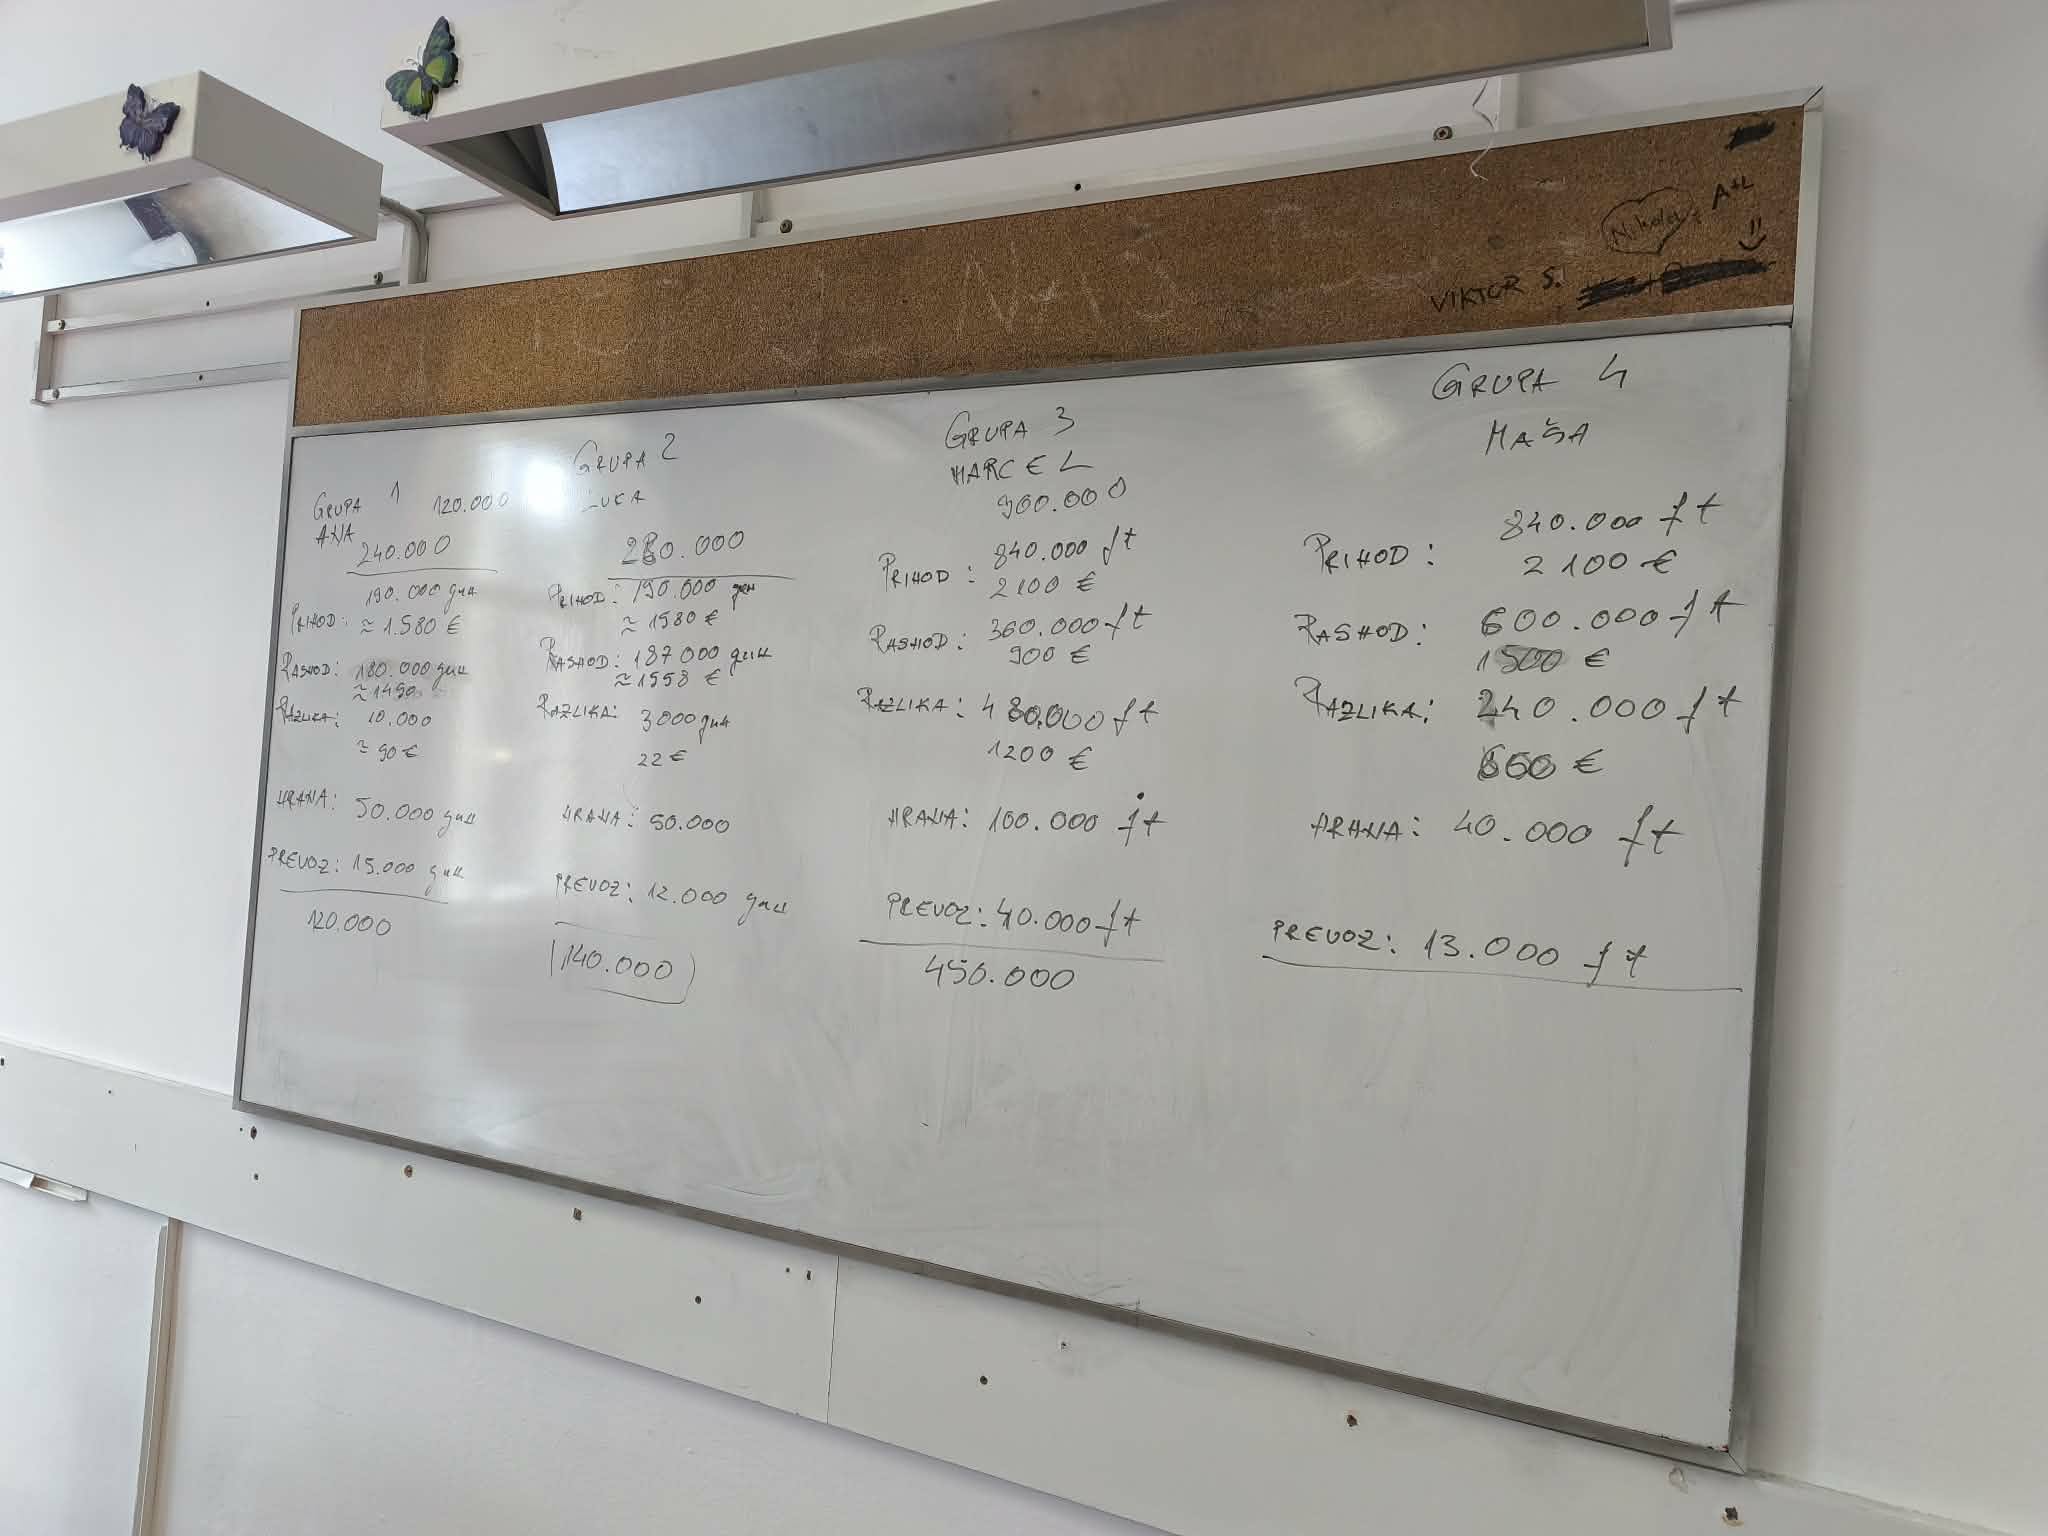 Nikola
A+L
VIKTOR S.
GRUPA 1 120.000
ANA
240.000
190.000 дин
PRIHOD: ≈ 1.580 €
RASHOD: 180.000 дин
≈ 1490
RAZLIKA: 10.000
≈ 90 €
HRANA: 50.000 дин
PREVOZ: 15.000 дин
120.000
GRUPA 2
LUKA
280.000
PRIHOD: 190.000 дин
≈ 1580 €
RASHOD: 187 000 дин
≈ 1558 €
RAZLIKA: 3000 дин
22 €
HRANA: 50.000
PREVOZ: 12.000 дин
140.000
GRUPA 3
MARCEL
900.000
PRIHOD: 840.000 ft
2100 €
RASHOD: 360.000 ft
900 €
RAZLIKA: 480.000 ft
1200 €
HRANA: 100.000 ft
PREVOZ: 40.000 ft
450.000
GRUPA 4
MAŠA
PRIHOD: 840.000 ft
2 100 €
RASHOD: 600.000 ft
1500 €
RAZLIKA: 240.000 ft
600 €
HRANA: 40.000 ft
PREVOZ: 13.000 ft